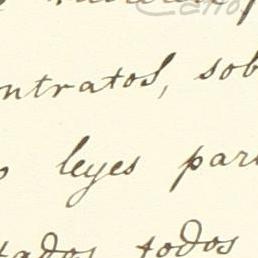 ntratos, sob
leyes par
tados todos